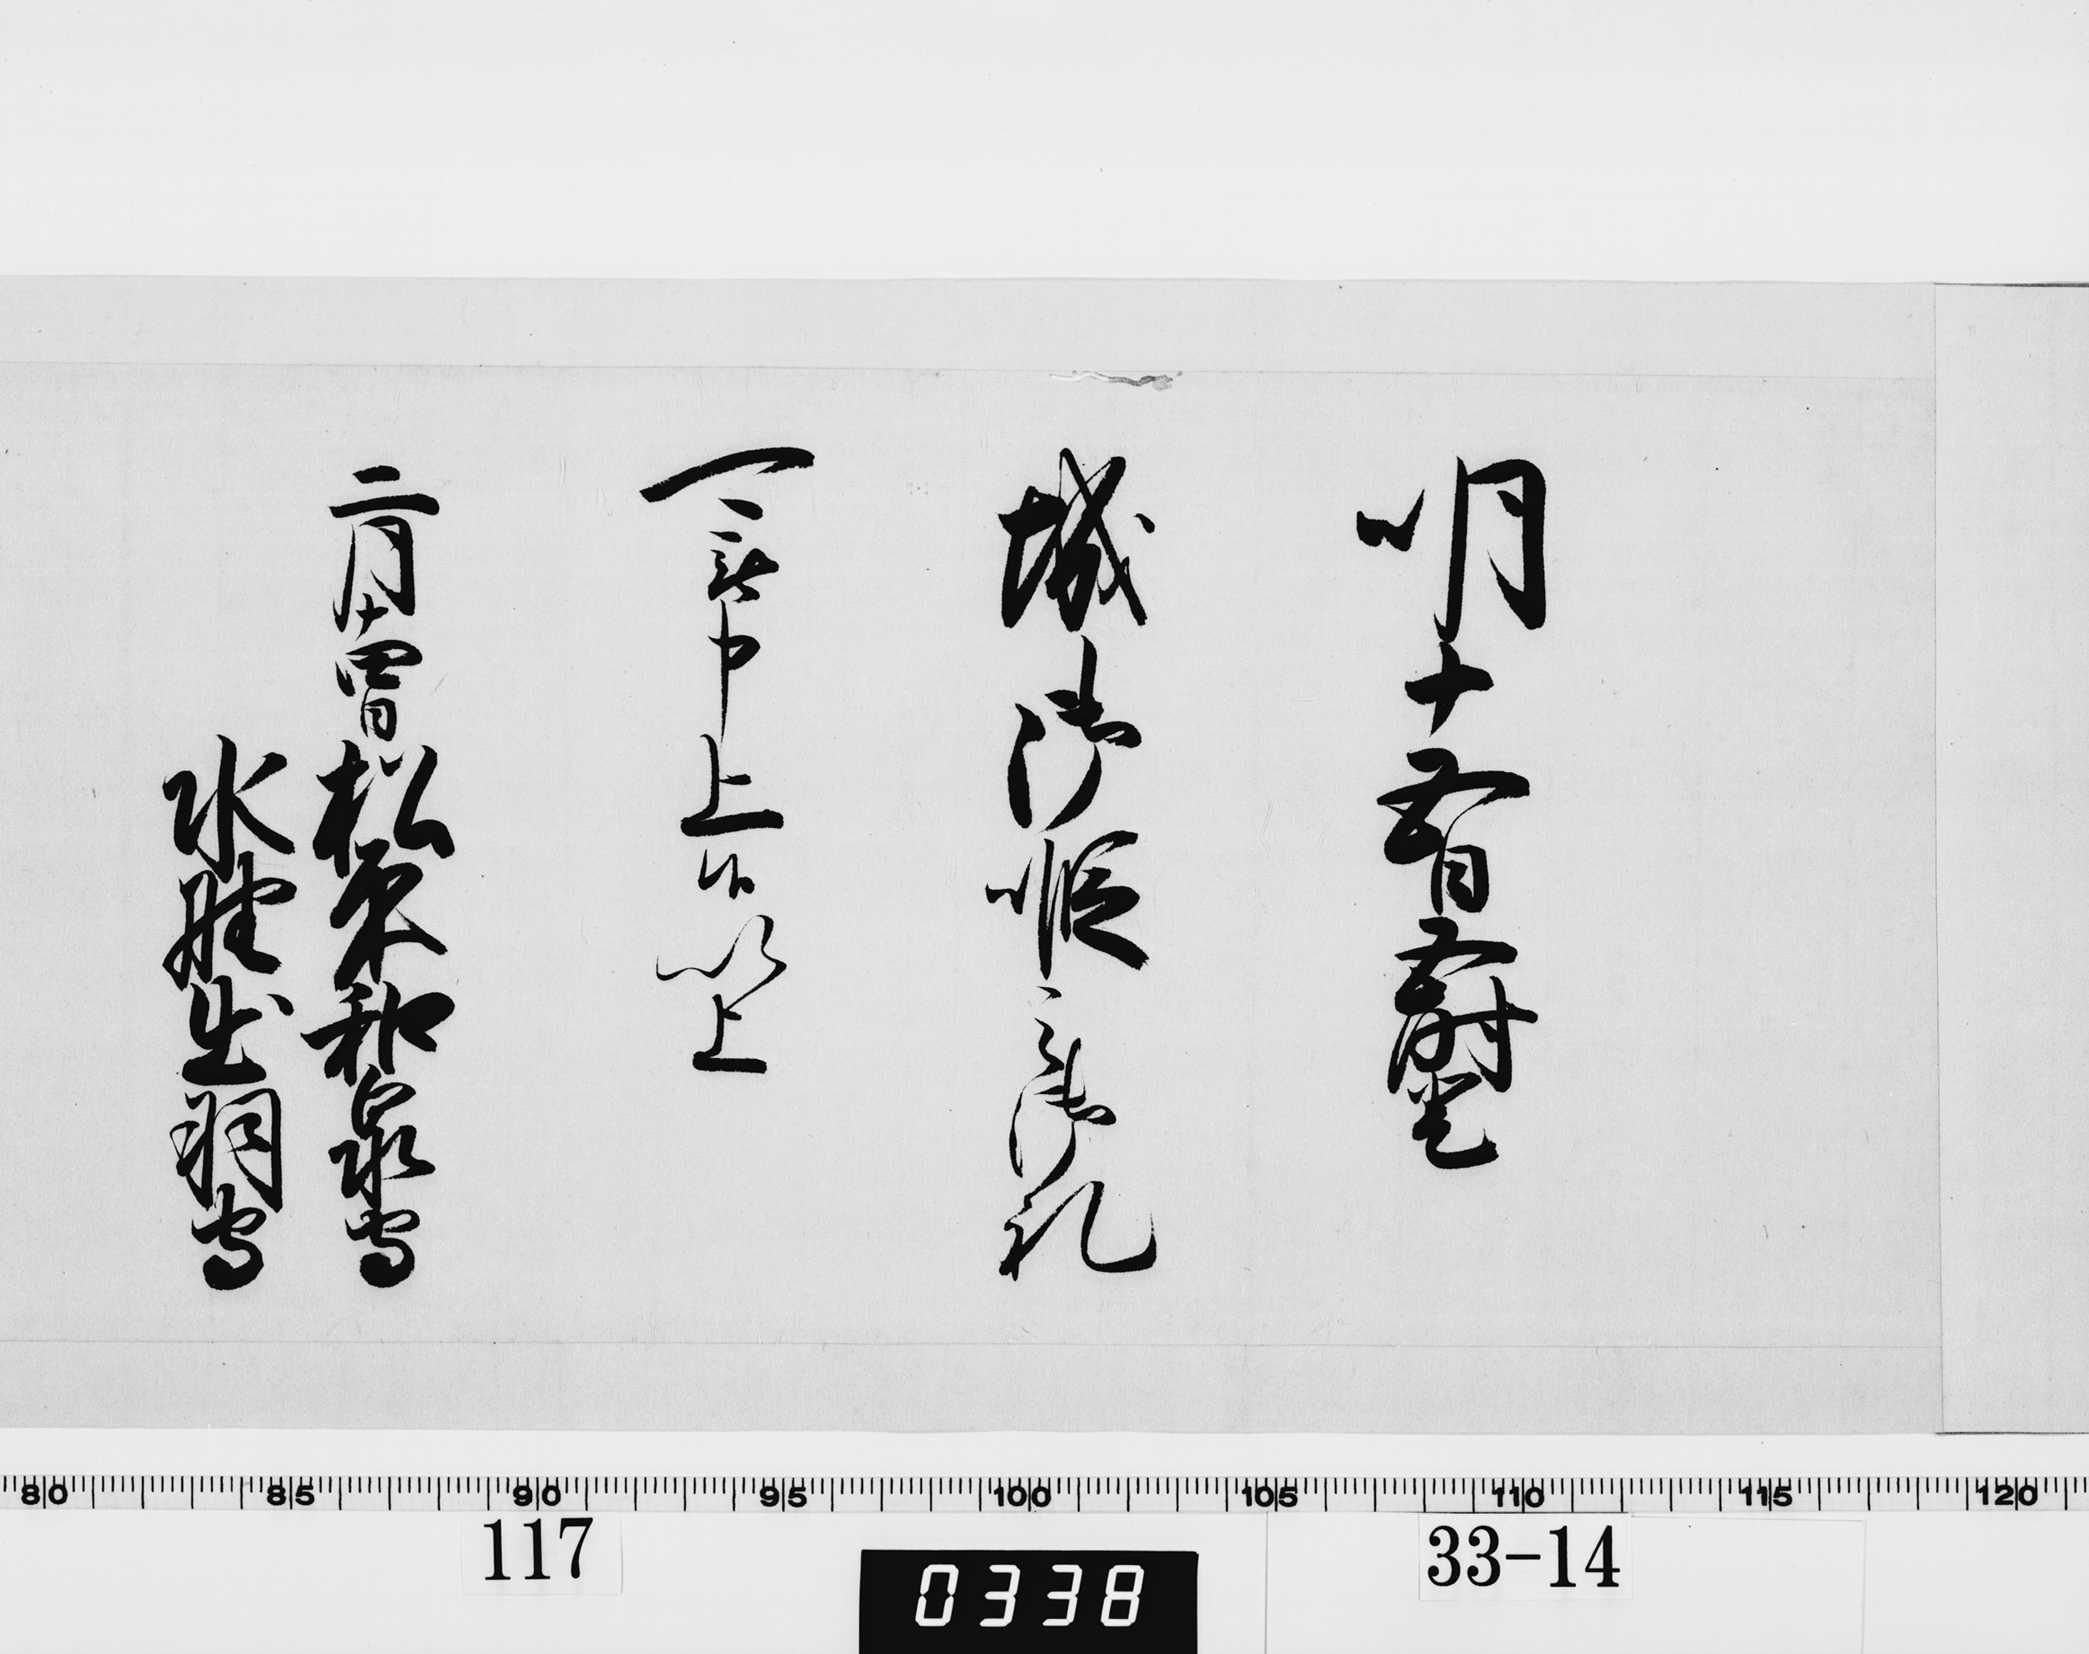 明十五日五時登
城御暇之御礼
可被申上候以上
二月十四日 松平和泉守
水野出羽守
80 85 90 95 100 105 110 115 120
117
0338
33-14